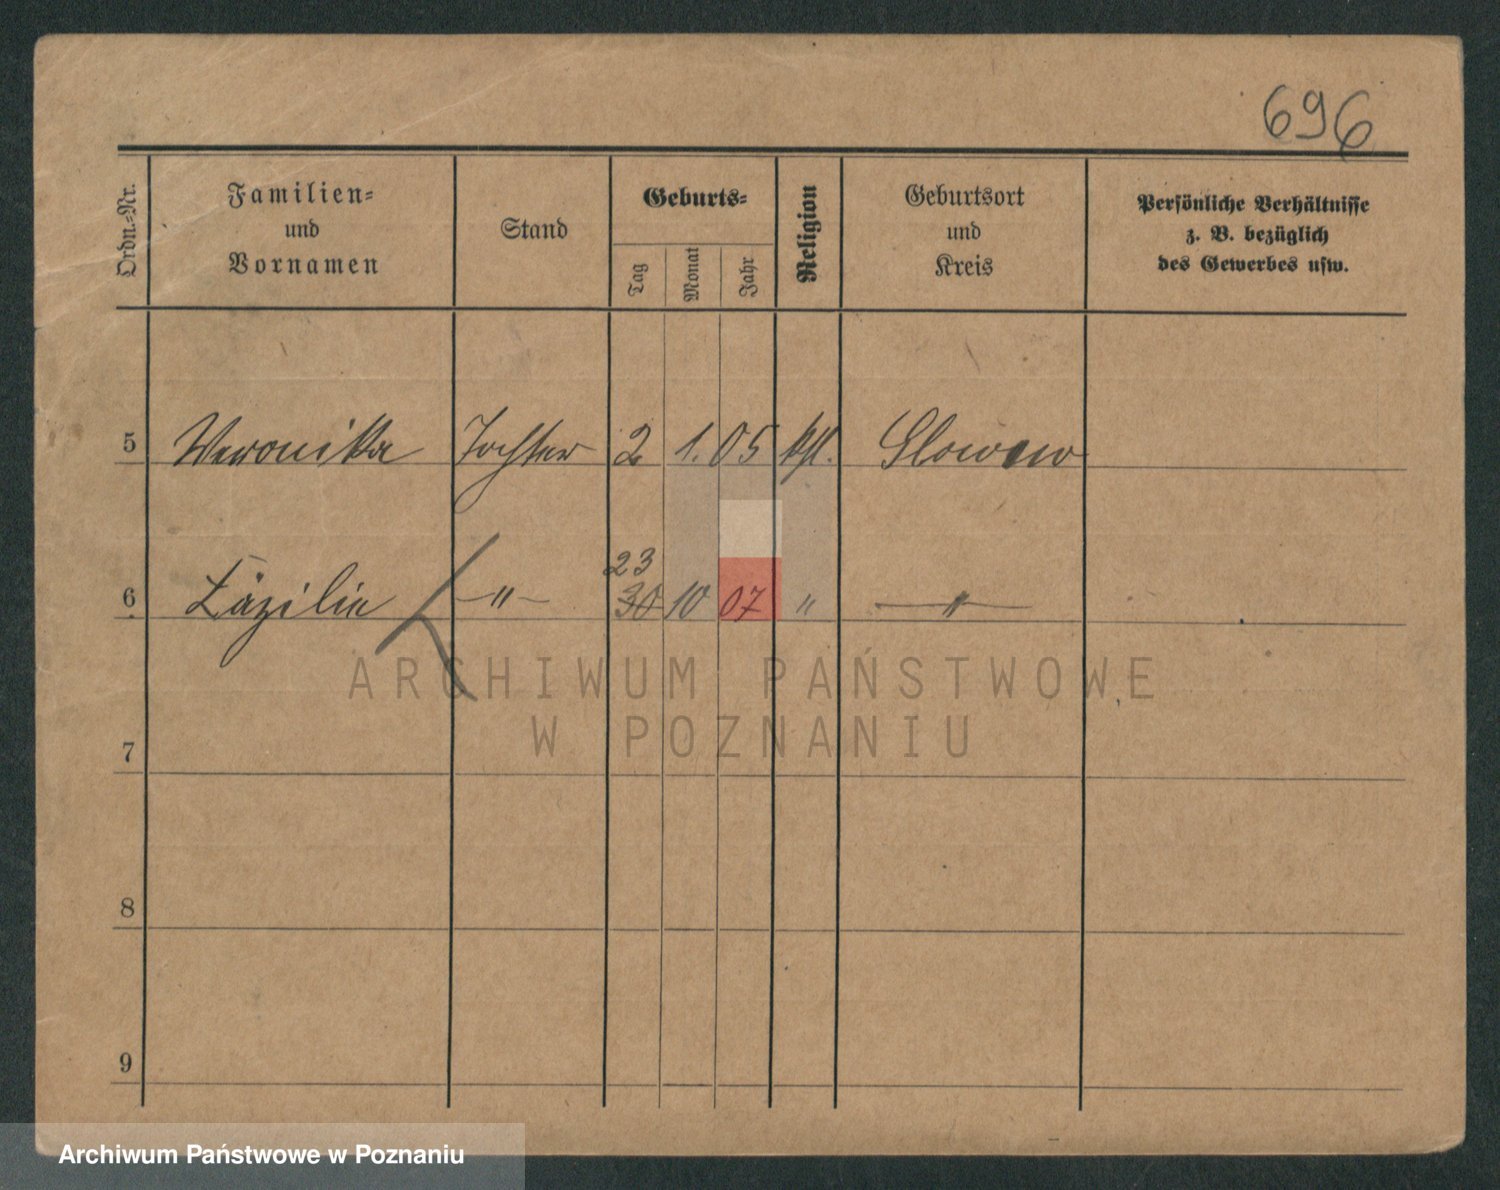 696
Ordn.=Nr.
Familien=
und
Vornamen
Stand
Geburts=
Tag
Monat
Jahr
Religion
Geburtsort
und
Kreis
Persönliche Verhältnisse
z. B. bezüglich
des Gewerbes usw.
5 Weronika Tochter 2 1. 05 kth. Slowen
23
6 Zäzilie —"— 30 10 07 " —"—
7
8
9
ARCHIWUM PAŃSTWOWE
W POZNANIU
Archiwum Państwowe w Poznaniu